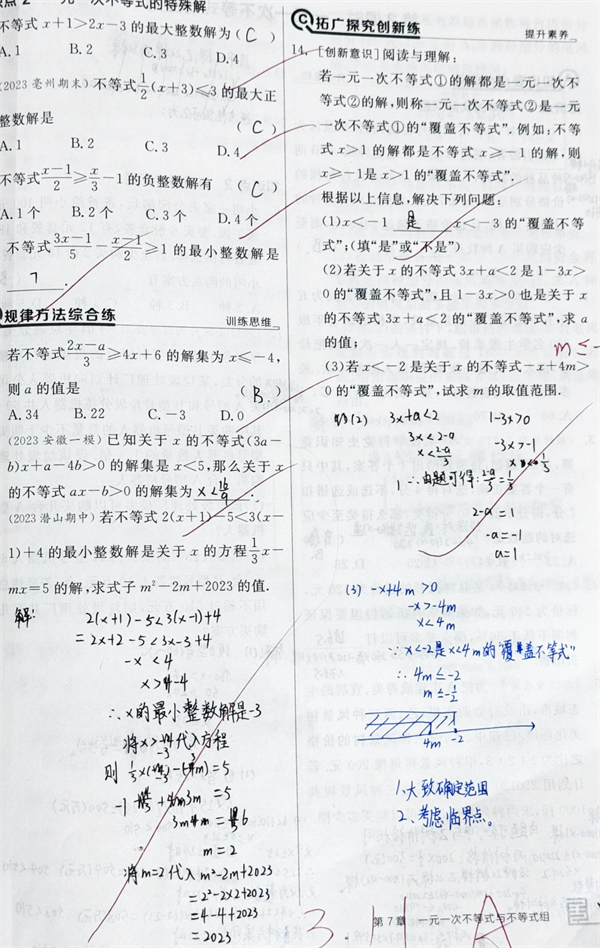 一元一次不等式的特殊解
不等式x+1>2x-3的最大整数解为( C )
A. 1 B. 2 C. 3 D. 4
(2023亳州期末)不等式1/2(x+3)≤3的最大正
整数解是 ( C )
A. 1 B. 2 C. 3 D. 4
不等式(x-1)/2≥x/3-1的负整数解有 ( C )
A. 1个 B. 2个 C. 3个 D. 4个
不等式(3x-1)/5-(x-1)/2≥1的最小整数解是
7.
规律方法综合练 训练思维
若不等式(2x-a)/3≥4x+6的解集为x≤-4,
则a的值是 ( B. )
A. 34 B. 22 C. -3 D. 0
(2023安徽一模)已知关于x的不等式(3a-
b)x+a-4b>0的解集是x<5,那么关于x
的不等式ax-b>0的解集为x<16/9.
(2023潜山期中)若不等式2(x+1)-5<3(x-
1)+4的最小整数解是关于x的方程1/3x-
mx=5的解,求式子m²-2m+2023的值.
解:
2(x+1)-5<3(x-1)+4
=2x+2-5<3x-3+4
-x<4
x>-4
∴x的最小整数解是-3
将x>-3代入方程
则 1/3×(-3)-(-3m)=5
-1+3m=5
3m=6
m=2
将m=2代入m²-2m+2023
=2²-2×2+2023
=4-4+2023
=2023
C拓广探究创新练 提升素养
14. [创新意识]阅读与理解:
若一元一次不等式①的解都是一元一次不
等式②的解,则称一元一次不等式②是一元
一次不等式①的“覆盖不等式”.例如:不等
式x>1的解都是不等式x≥-1的解,则
x≥-1是x>1的“覆盖不等式”.
根据以上信息,解决下列问题:
(1)x<-1 是 x<-3的“覆盖不等
式”;(填“是”或“不是”)
(2)若关于x的不等式3x+a<2是1-3x>
0的“覆盖不等式”,且1-3x>0也是关于x
的不等式3x+a<2的“覆盖不等式”,求a
的值;
(3)若x<-2是关于x的不等式-x+4m>
0的“覆盖不等式”,试求m的取值范围.
m≤-
(2) 3x+a<2 1-3x>0
3x<2-a -3x>-1
x<(2-a)/3 x<1/3
∴由题可得:(2-a)/3=1/3
2-a=1
-a=-1
a=1
(3) -x+4m>0
-x>-4m
x<4m
∵x<-2是x<4m的“覆盖不等式”
∴4m≤-2
m≤-1/2
4m -2
1、大致确定范围
2、考虑临界点.
第7章 一元一次不等式与不等式组 31
A